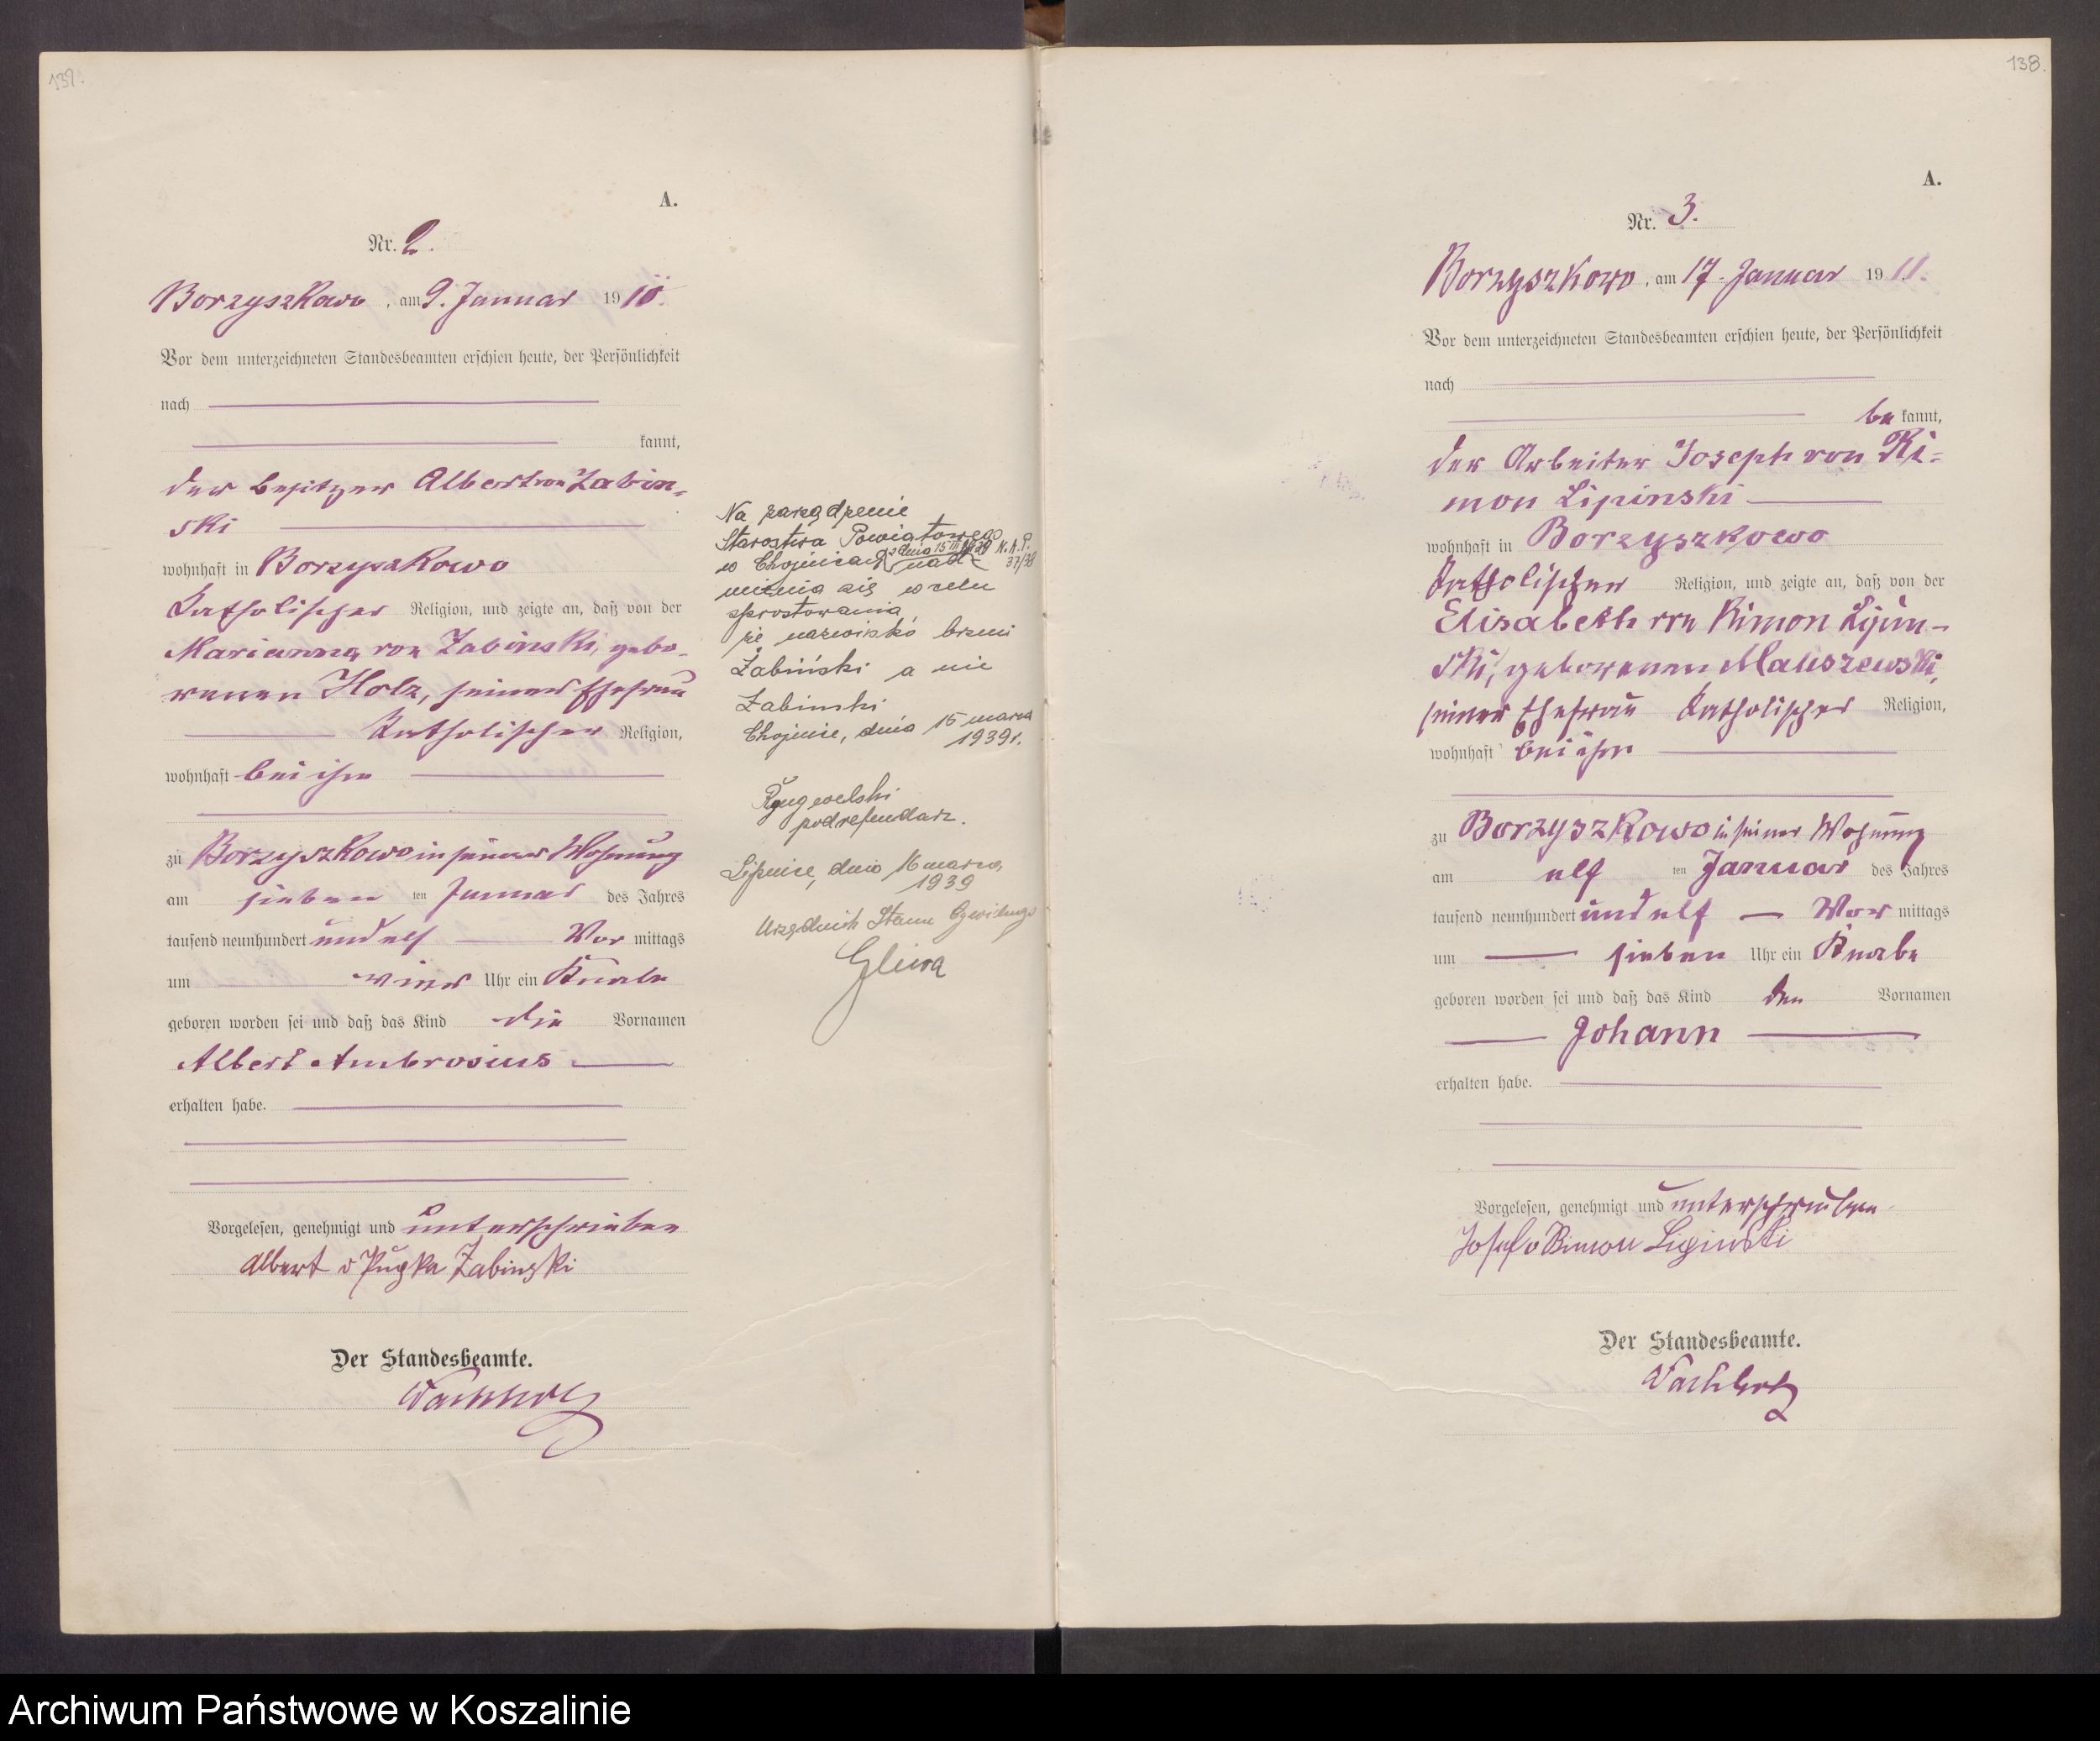 137.
A.
Nr. 2.
Borzyszkowo, am 9. Januar 1911.
Vor dem unterzeichneten Standesbeamten erschien heute, der Persönlichkeit
nach
kannt,
der Besitzer Albert von Zabin-
ski
wohnhaft in Borzyszkowo
katholischer Religion, und zeigte an, daß von der
Marianna von Zabinski, gebo-
renen Holz, seiner Ehefrau
katholischer Religion,
wohnhaft bei ihm
zu Borzyszkowo in seiner Wohnung
am sieben ten Januar des Jahres
tausend neunhundert und elf Vor mittags
um vier Uhr ein Knabe
geboren worden sei und daß das Kind die Vornamen
Albert Ambrosius
erhalten habe.
Vorgelesen, genehmigt und unterschrieben
Albert v Zabinski
Der Standesbeamte.
Wachholz
Na zarządzenie
Starostwa Powiatowego
w Chojnicach z dnia 15 III 1939 N.A.P. 37/38
uwidacznia się w celu
sprostowania,
że nazwisko brzmi
Żabiński a nie
Zabinski
Chojnice, dnia 15 marca
1939 r.
podreferendarz.
Lipnice, dnia 16 marca,
1939
Urzędnik Stanu Cywilnego
Gliwa
138.
A.
Nr. 3.
Borzyszkowo, am 17. Januar 1911.
Vor dem unterzeichneten Standesbeamten erschien heute, der Persönlichkeit
nach
be kannt,
der Arbeiter Joseph von Ki-
mon Lipinski
wohnhaft in Borzyszkowo
katholischer Religion, und zeigte an, daß von der
Elisabeth von Kimon Lipin-
ski, geborenen Malszewski,
seiner Ehefrau katholischer Religion,
wohnhaft bei ihm
zu Borzyszkowo in seiner Wohnung
am elf ten Januar des Jahres
tausend neunhundert und elf Vor mittags
um sieben Uhr ein Knabe
geboren worden sei und daß das Kind den Vornamen
Johann
erhalten habe.
Vorgelesen, genehmigt und unterschrieben
Josef v Kimon Lipinski
Der Standesbeamte.
Wachholz
Archiwum Państwowe w Koszalinie